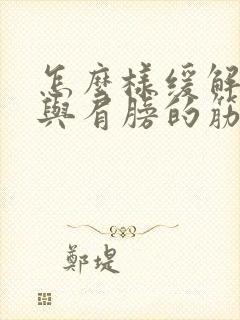 怎麼樣緩解
與肩膀的筋
鄭堤